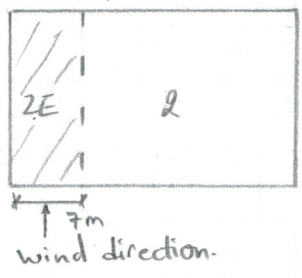 2E 2
7m
wind direction.